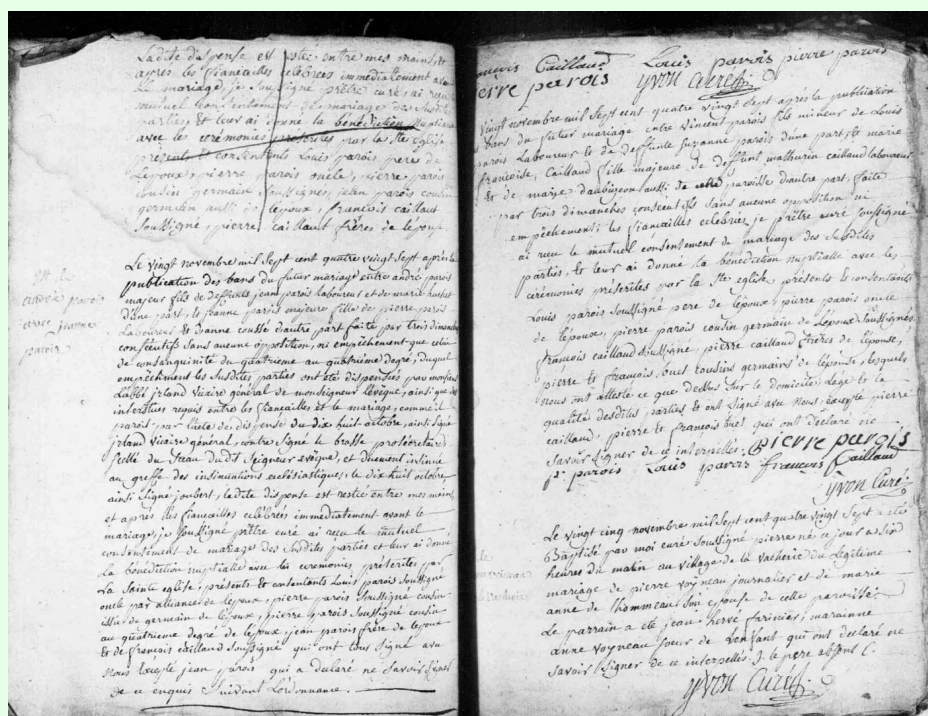 Ladite dispense est restée entre mes mains, et
après les fiancailles célébrées immédiatement avant
Le mariage, je soussigné prêtre curé ai recu
mutuel consentement de mariage des susdites
parties et leur ai donné la bénédiction Nuptiale
avec les cérémonies préscrites par la Ste eglise
présents et consentants Louis parois, pere de
Lépoux, pierre parois oncle, pierre parois
cousin germain soussignés, jean parois cousin
germain aussi de lépoux, francois caillaut
soussigné, pierre caillaut frères de lepouse
Le vingt novembre mil sept cent quatre vingt sept après la
publication des bans du futur mariage entre andré parois
majeur fils de deffunts jean parois laboureur et de marie
d'une part, et jeanne parois majeure fille de pierre parois
Laboureur et d'anne cousse d'autre part faite par trois dimanches
consécutifs sans aucune opposition, ni empêchement que celui
de consanguinité du quatrieme au quatrième degré, duquel
empêchement les susdites parties ont été dispensés par monsieur
L'abbé jrland vicaire général de monseigneur L'evêque, ainsi que des
interstices requis entre les fiancailles et le mariage, comme il
paroit par l'acte de dispense du dix huit octobre, ainsi signé
jrland vicaire général, contre signé le brosse prosécretaire
scellé du sceau dudit seigneur evêque, et duement insinué
au greffe des insinuations ecclésiastiques, le dix huit octobre
ainsi signé joubert, ladite dispense est restée entre mes mains
et après les fiancailles célébrées immédiatement avant le
mariage, je soussigné prêtre curé ai recu le mutuel
consentement de mariage des susdites parties et leur ai donné
la bénédiction nuptialle avec les cérémonies préscrites par
La Sainte eglise, présents et consentants Louis parois soussigné
oncle par alliance de lépoux, pierre parois soussigné cousin
issu de germain de lépoux, pierre parois soussigné cousin
au quatrieme degré de lepoux jean parois frère de lepoux
et de francois caillaud soussigné qui ont tous signé avec
Nous Excepté jean parois qui a declaré ne savoir signer
de ce enquis suivant Lordonnance.
andré parois
avec jeanne
parois
francois Caillaud Louis parois pierre parois
pierre parois yvon Curé
vingt novembre mil sept cent quatre vingt sept après la publication
bans du futur mariage entre vincent parois fils mineur de Louis
parois Laboureur et de deffunte suzanne parois d'une part, et marie
francoise, Caillaud fille majeure de deffunt mathurin caillaud laboureur
et de marie daubigeon aussi de cette paroisse d'autre part, faite
par trois dimanches consécutifs sans aucune opposition ni
empêchement; les fiancailles célébrées je prêtre curé soussigné
ai recu le mutuel consentement de mariage des susdites
parties, et leur ai donné la bénédiction nuptialle avec les
cérémonies préscrites par la Ste eglise, présents et consentants
Louis parois soussigné pere de lepoux, pierre parois oncle
de lépoux, pierre parois cousin germain de lépoux soussignés
françois caillaud soussigné, pierre caillaud frères de lépouse,
pierre et francois, cousins germains de lépouse, lesquels
nous ont attesté ce que dessus sur le domicile, lage et la
qualité desdites parties et ont signé avec Nous excepté pierre
caillaud, pierre et françois qui ont declaré ne
savoir signer de ce interpellés. pierre parois
p. parois Louis parois francois Caillaud
yvon Curé
Le vingt cinq novembre mil sept cent quatre vingt sept a été
Baptisé par moi curé soussigné pierre né ce jour a six
heures du matin au village de la vacherie du Légitime
mariage de pierre voyneau journalier et de marie
anne de lhommeau son epouse de cette paroisse
Le parrain a eté jean hervé farinier; marainne
anne voyneau soeur de Lenfant qui ont déclaré ne
savoir signer de ce interpellés, le pere absent
yvon Curé